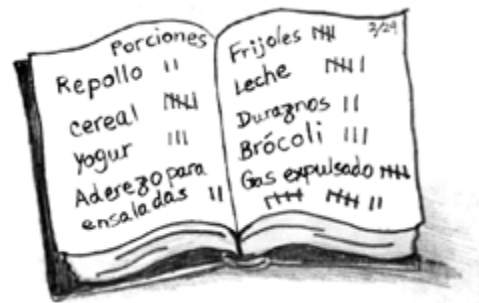 Porciones
Repollo II
cereal IIII I
Yogur III
Aderezo para
ensaladas II
3/29
Frijoles IIII
Leche IIII I
Duraznos II
Brócoli III
Gas expulsado IIII
IIII IIII II